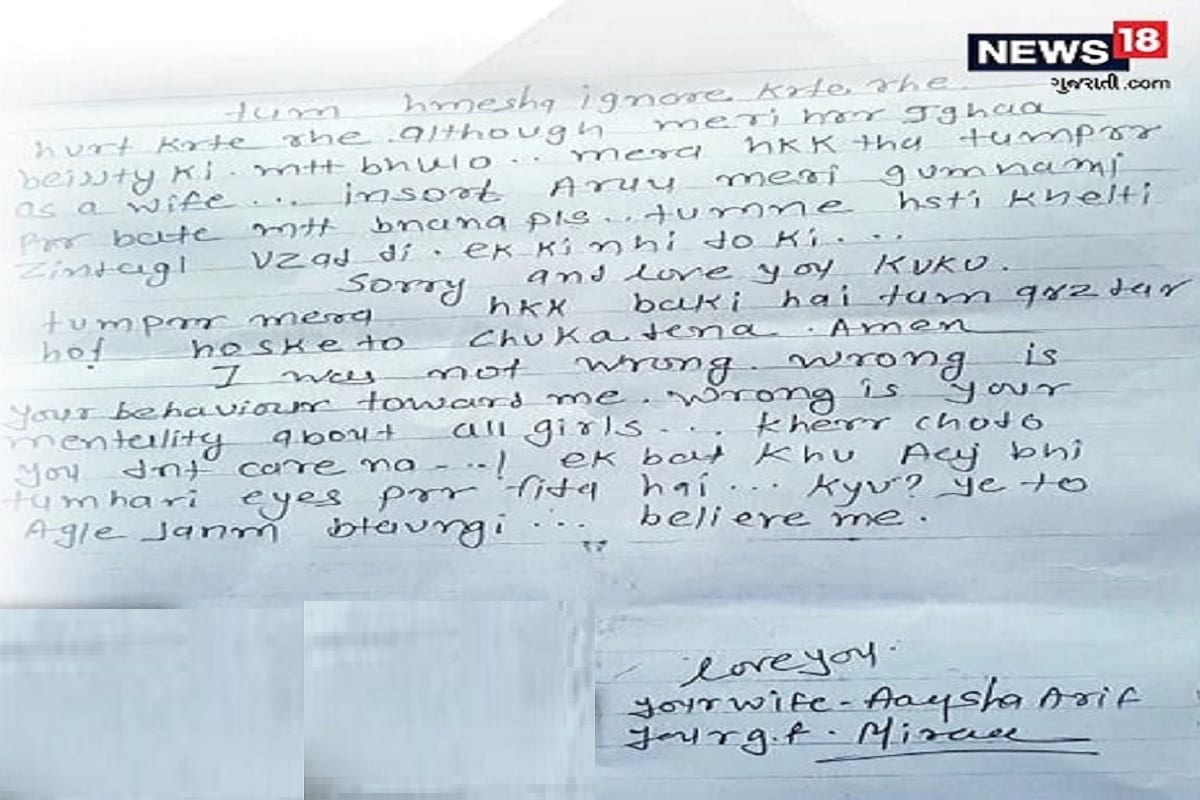 NEWS 18
ગુજરાતી.com
tum hmesha ignore krte rhe
hurt krte rhe. although meri hrr Jghaa
beissty ki. mtt bhulo.. mera hkk tha tumprr
as a wife... insort Aruu meri gumnami
prr bate mtt bnana pls.. tumne hsti khelti
Zindagi uzad di. ek ki nhi do ki...
Sorry and love you KUKU.
tumprr mera hkk baki hai tum qrzdar
ho! hoske to chuka dena. Amen
I was not wrong. wrong is
your behaviour toward me. wrong is your
mentality about all girls... kherr chodo
you dnt care na...! ek bat khu Aaj bhi
tumhari eyes prr fida hai... kyu? ye to
Agle Janm btaungi... beliere me.
love you.
your wife - Aaysha Arif
your g.f.